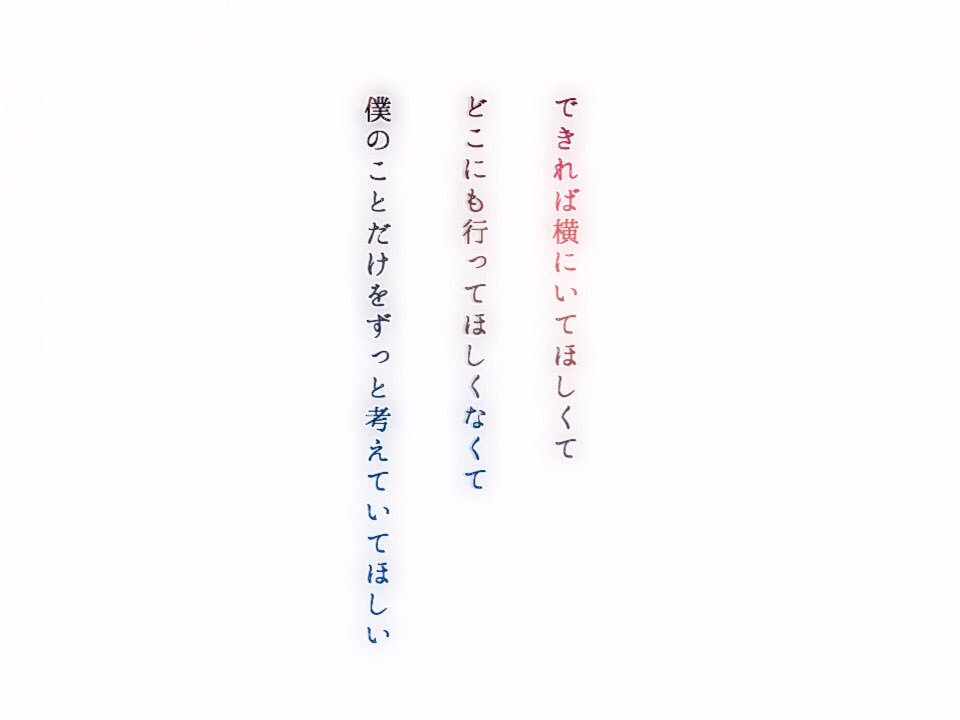 できれば横にいてほしくて
どこにも行ってほしくなくて
僕のことだけをずっと考えていてほしい